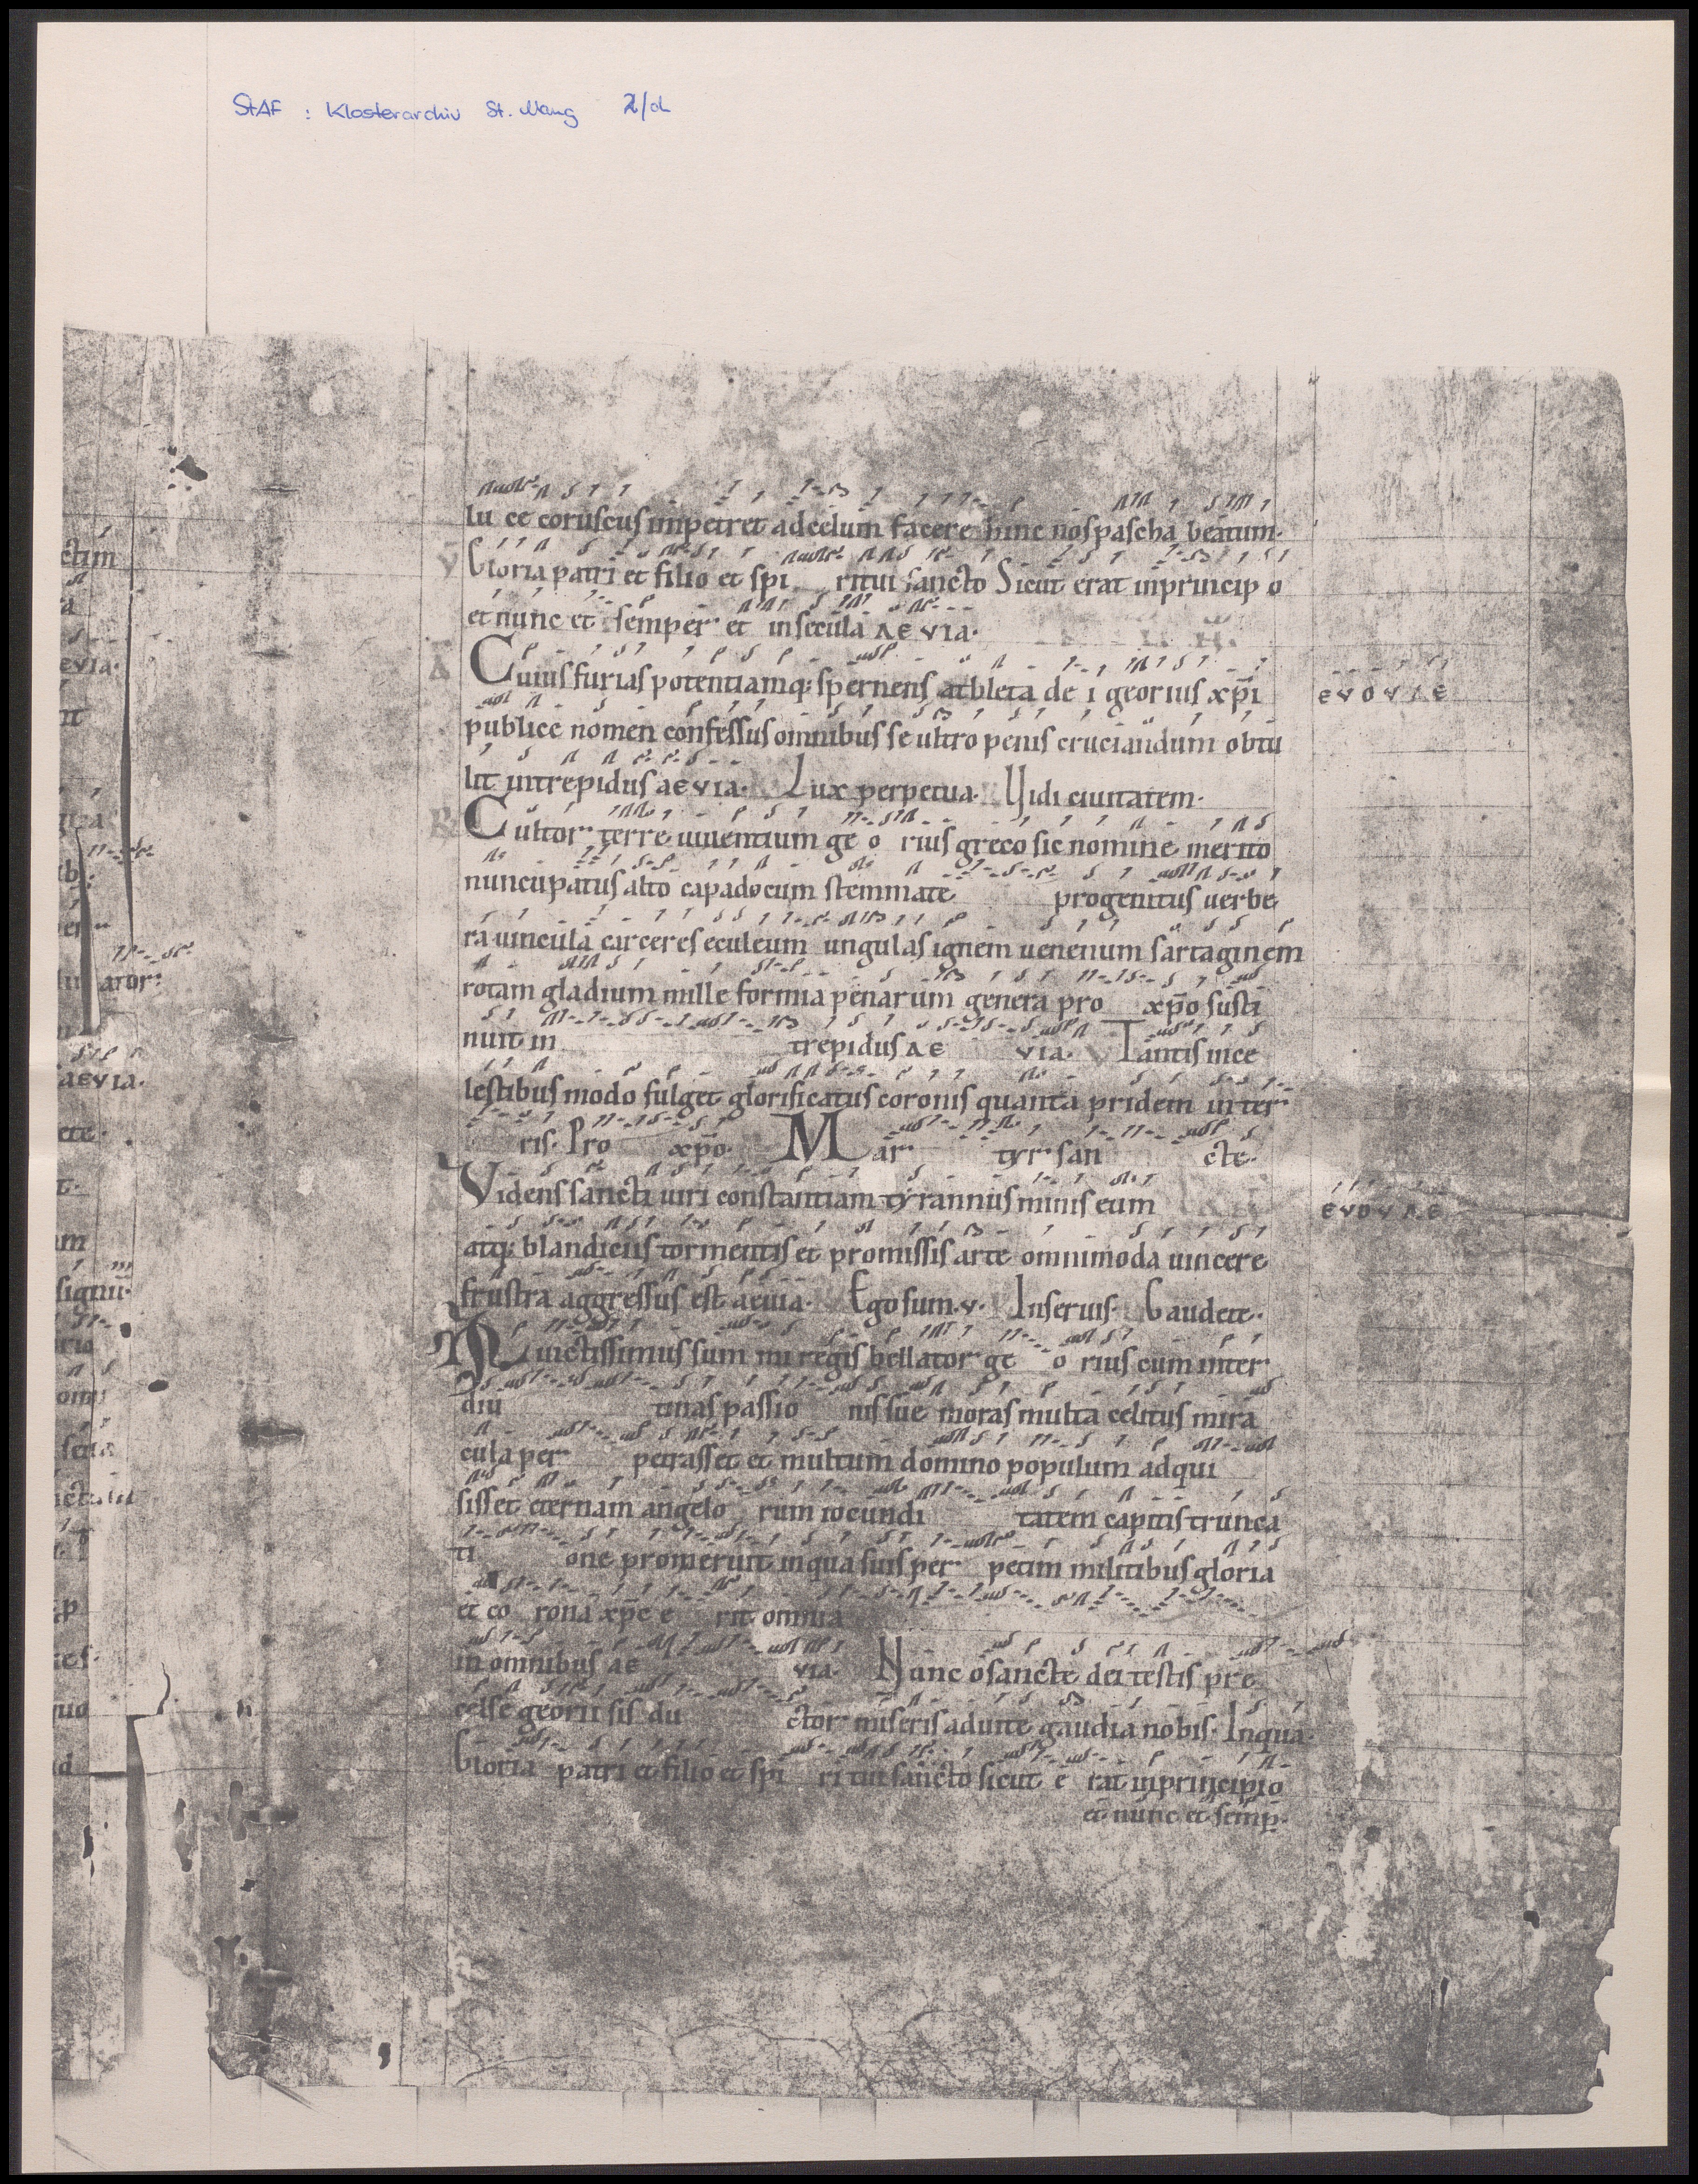 StAF : Klosterarchiv St. Mang 2/d
lu ce coruscus impetret ad celum facere hinc nos pascha beatum·
V Gloria patri et filio et spi ritui sancto Sicut erat in princip o
et nunc et semper et in secula AEVIA·
A Cuius furias potentiamq; spernens athleta de i georius xp̄i EVOVAE
publice nomen confessus omnibus se ultro penis cruciandum obtu
lit intrepidus aEVIA· Lux perpetua· Vidi ciuitatem·
R Cultor terre uiuentium ge o rius greco sic nomine merito
nuncupatus alto capadocum stemmate progenitus uerbe
ra uincula carceres eculeum ungulas ignem uenenum sartaginem
rotam gladium mille formia penarum genera pro xp̄o susti
nuit in trepidus AE VIA· V Tantis in ce
lestibus modo fulget glorificatus coronis quanta pridem in ter
ris· Pro xp̄o· Mar tyr san cte·
Videns sancti uiri constantiam tyrannus minis eum EVOVAE
atq; blandiciis tormentis et promissis arte omnimoda uincere
frustra aggressus est aeuia· Ego sum·v· In seruis· Gaudete·
Inuictissimus summi regis bellator ge o rius cum inter
diu tinas passio nis sue moras multa celitus mira
cula per petrasset et multum domino populum adqui
sisset eternam angelo rum iocundi tatem capitis trunca
ti one promeruit in qua suis per petim militibus gloria
et co rona xp̄c e rit omnia
in omnibus aE VIA· Nunc o sancte dei testis pre
celse georii sis du ctor miseris ad uite gaudia nobis· In qua·
Gloria patri et filio et spi ri tui sancto sicut e rat in principio
et nunc et semp̄·
ctim
EVIA·
ator·
aEVIA·
ete·